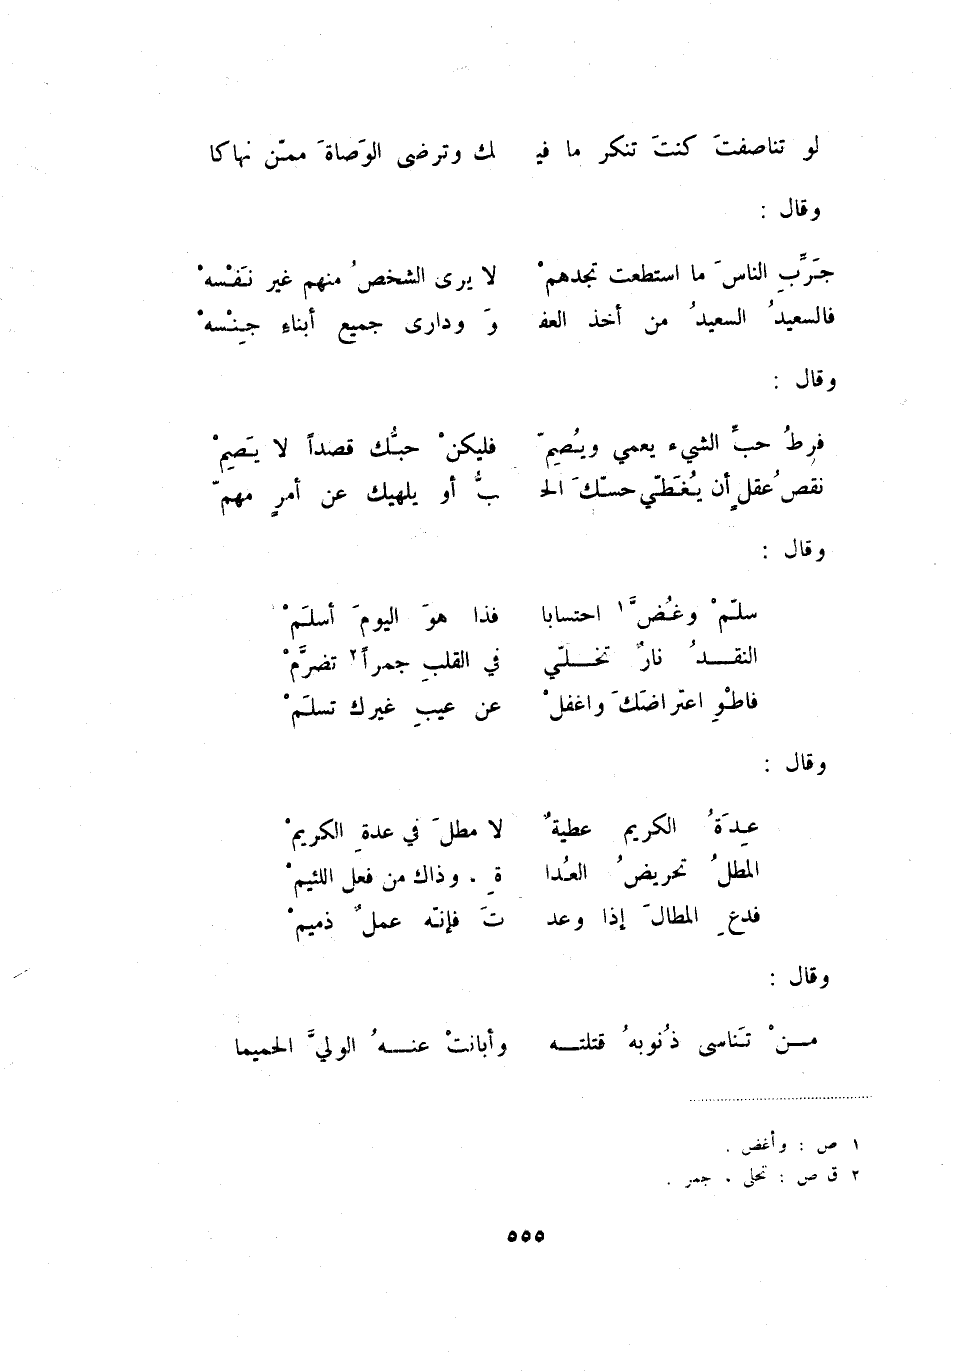 لو تناصفتَ كنتَ تنكر ما فيـ ـك وترضى الوَصاةَ ممّن نهاكا
وقال :
جَرِّبِ الناسَ ما استطعت تجدهمْ لا يرى الشخصُ منهم غير نَفْسهْ
فالسعيدُ السعيدُ من أخذ العفـ ـوَ ودارى جميع أبناءِ جِنْسهْ
وقال :
فرطُ حبِّ الشيء يعمي ويُصِمّ فليكنْ حبُّك قصداً لا يَصِمْ
نقصُ عقلٍ أن يُغَطّي حسّكَ الحـ ـبُّ أو يلهيك عن أمرٍ مهمّ
وقال :
سلّمْ وغُضَّ١ احتسابا فذا هوَ اليومَ أسلَمْ
النقـــدُ نارٌ تخـــلّي في القلبِ جمراً٢ تضرَّمْ
فاطْوِ اعتراضَكَ واغفلْ عن عيبِ غيرك تسلَمْ
وقال :
عِدَةُ الكريم عطيةٌ لا مطلَ في عدةِ الكريمْ
المطلُ تحريضُ العُدا ةِ . وذاك من فعل اللئيمْ
فدعِ المطالَ إذا وعد تَ فإنّه عملٌ ذميمْ
وقال :
مــنْ تَناسى ذُنوبهُ قتلتــه وأبانتْ عنــهُ الوليَّ الحميما
١ ص : وأغض .
٢ ق ص : تحلى . جمر .
٥٥٥